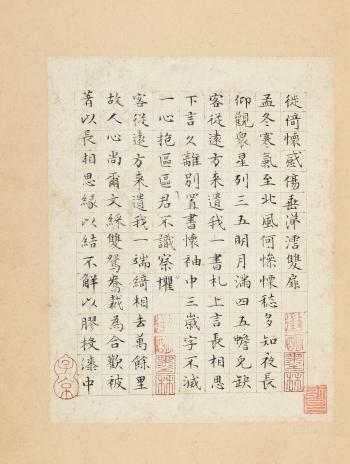 徙倚懷感傷垂涕霑雙扉
孟冬寒氣至北風何慘慄愁多知夜長
仰觀衆星列三五明月滿四五蟾兔缺
客從遠方来遺我一書札上言長相思
下言久離別置書懷袖中三歲字不滅
一心抱區區君不識察懼
客從遠方来遺我一端綺相去萬餘里
故人心尚爾文綵雙鴛鴦裁為合歡被
著以長相思緣以結不解以膠投漆中
子京